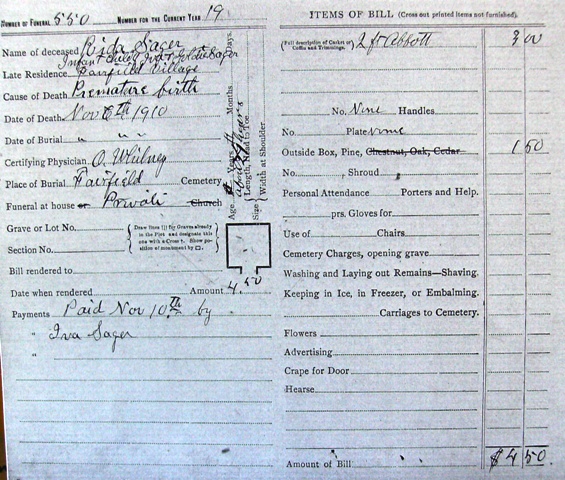 NUMBER OF FUNERAL 550 NUMBER FOR THE CURRENT YEAR 19
Name of deceased Rida Sager
Infant child of Iva & Goldie Sager
Late Residence Fairfield Village
Cause of Death Premature birth
Date of Death Nov 6th 1910
Date of Burial " " "
Certifying Physician O. Whitney
Place of Burial Fairfield Cemetery
Funeral at house or Private Church
Grave or Lot No.
Section No.
Draw lines (|) for Graves already in the Plot and designate this one with a Cross †. Show position of monument by □.
Bill rendered to
Date when rendered Amount 4.50
Payments Paid Nov 10th by
" Iva Sager
"
Age Years Months Days.
about hours
Size Length, Head to Toe.
Width at Shoulder.
ITEMS OF BILL (Cross out printed items not furnished).
(Full description of Casket or Coffin and Trimmings. 2 ft Abbott 3 00
No. Nine Handles.
No. Plate none
Outside Box, Pine, Chestnut, Oak, Cedar 1 50
No. , Shroud
Personal Attendance Porters and Help.
prs. Gloves for
Use of Chairs.
Cemetery Charges, opening grave
Washing and Laying out Remains—Shaving.
Keeping in Ice, in Freezer, or Embalming.
Carriages to Cemetery.
Flowers
Advertising
Crape for Door
Hearse
Amount of Bill $4 50